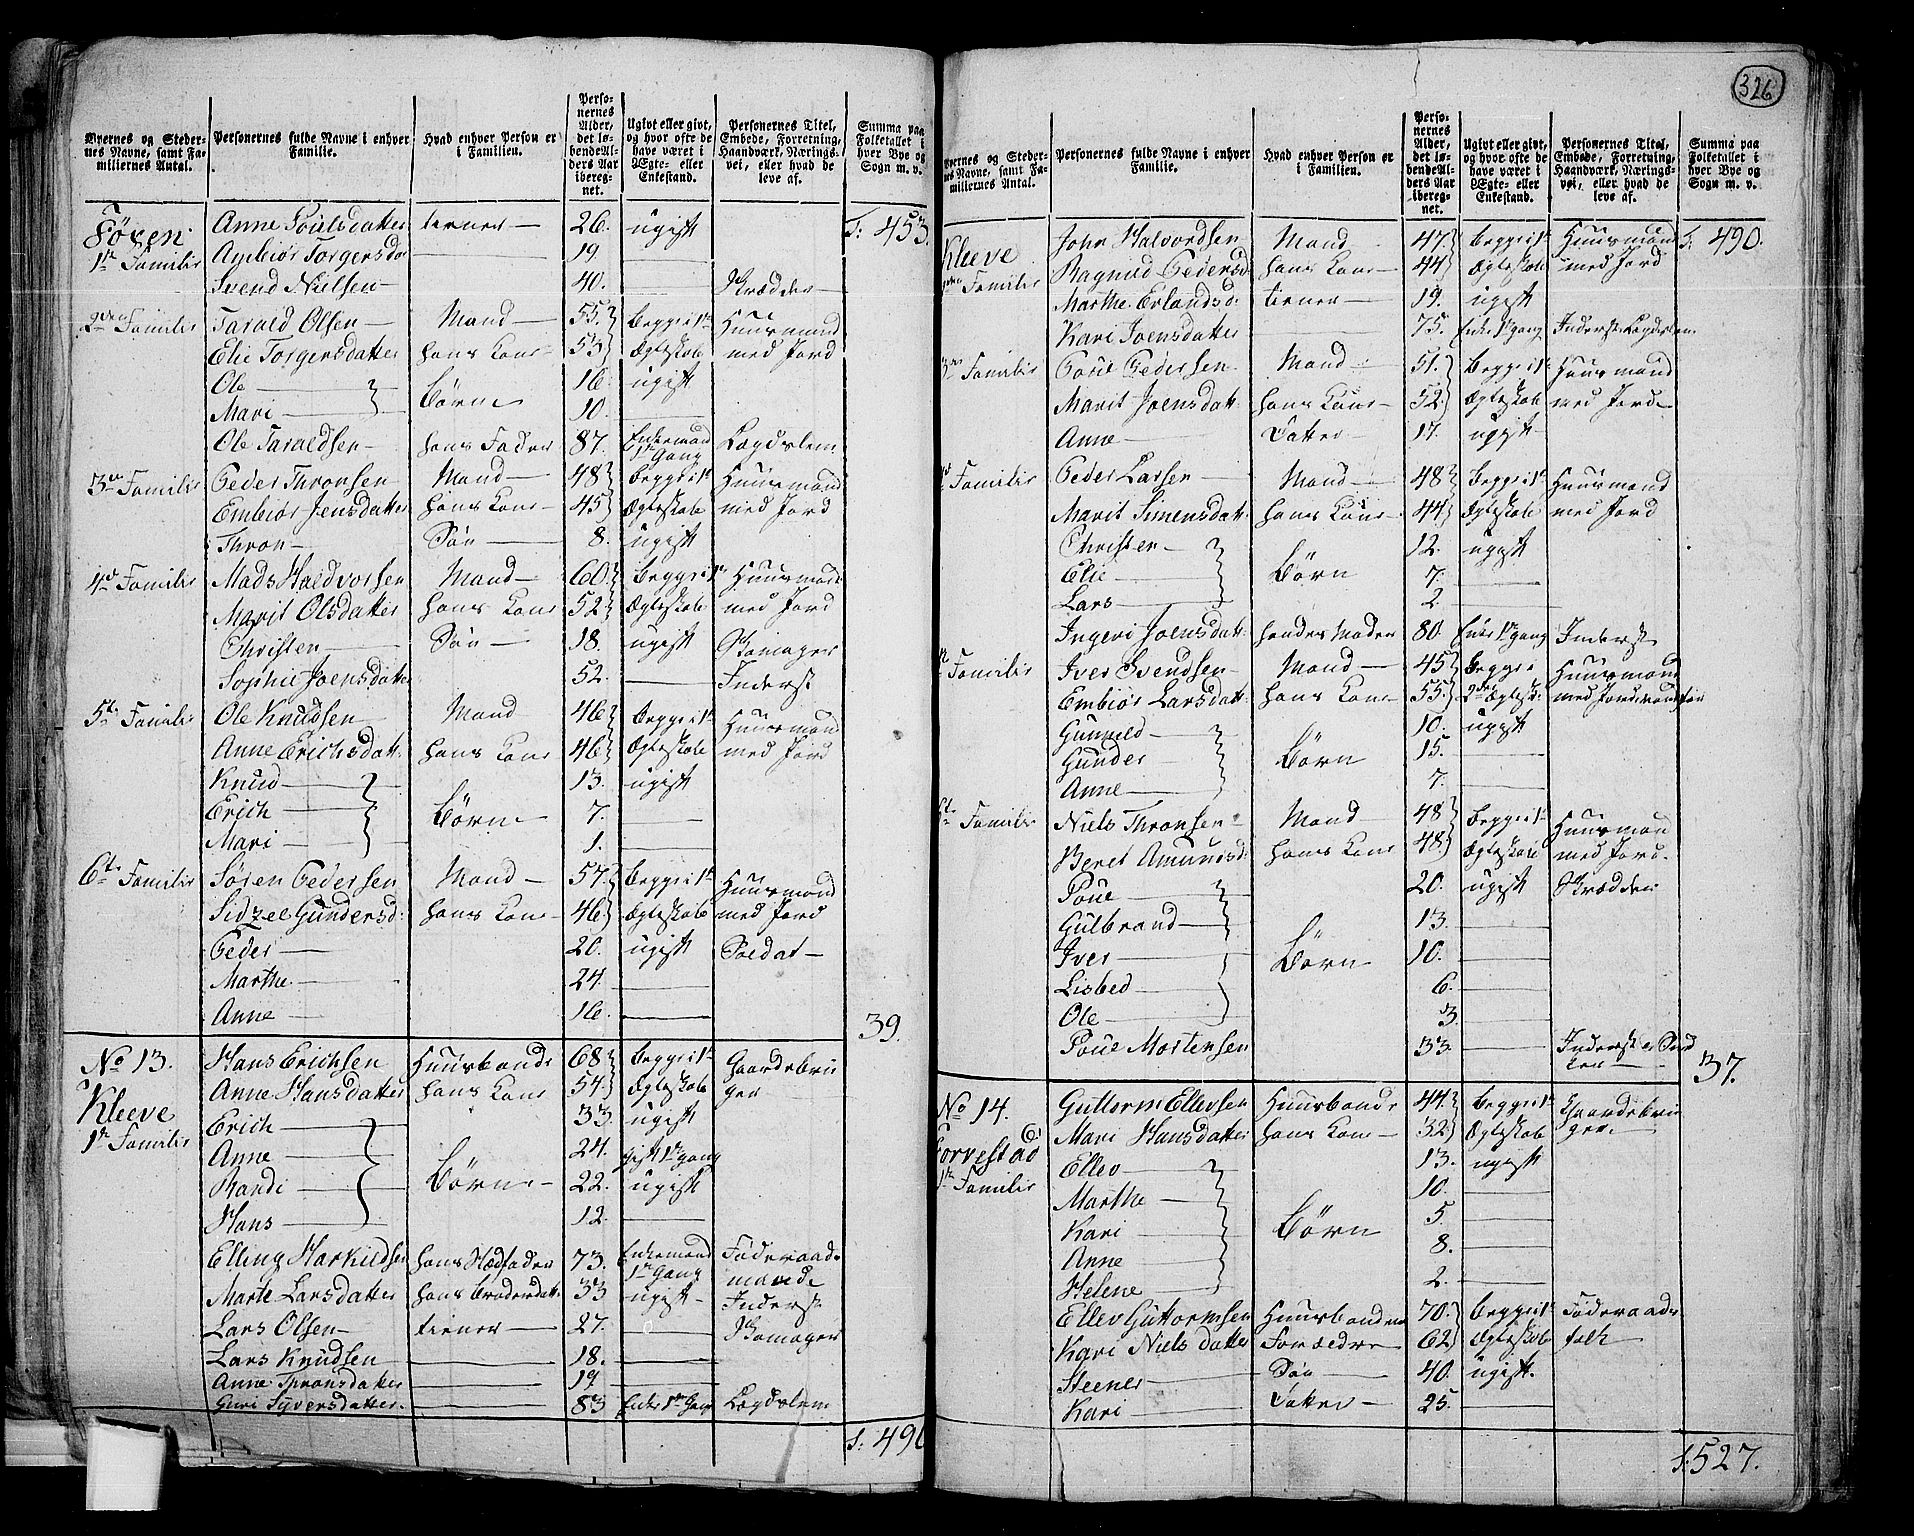 326
Byernes og Stedernes Navne, samt Familiernes Antal. | Personernes fulde Navne i enhver Familie. | Hvad enhver Person er i Familien. | Personernes Alder, det løbende Alders Aar iberegnet. | Ugivt eller givt, og hvor ofte de have været i Ægte- eller Enkestand. | Personernes Titel, Embede, Forretning, Haandværk, Næringsvei, eller hvad de leve af. | Summa paa Folketallet i hver Bye og Sogn m. v.
Føren | Anne Poulsdatter | tiener | 26 | ugift | | S: 453.
1te Familie | Anbiør Torgersda | — | 19 | —
Svend Nielsen | | 40. | — | Skrædder
2den Familie | Tarald Olsen | Mand | 55. | Begge i 1te | Huusmand
Elie Torgersdatter | hans Kone | 53 | Ægteskab | med Jord
Ole | Børn | 16 | ugift
Mari | | 10. | —
Ole Taraldsen | hans Fader | 87. | Enkemand 1te Gang | Lægdslem
3de Familie | Peder Thronsen | Mand | 48 | Begge i 1te | Huusmand
Embiør Jensdatter | hans Kone | 45 | Ægteskab | med Jord
Thron | Søn | 8. | ugift
4de Familie | Mads Haldvorsen | Mand | 60. | Begge i 1te | Huusmand
Marit Olsdatter | hans Kone | 52 | Ægteskab | med Jord
Christen | Søn | 18. | ugift | Skomager
Sophie Joensdatter | | 52. | — | Inderst
5te Familie | Ole Knudsen | Mand | 46 | Begge i 1te | Huusmand
Anne Erichsdatt: | hans Kone | 46 | Ægteskab | med Jord
Knud | | 13. | ugift
Erich | Børn | 7. | —
Mari | | 1. | —
6te Familie | Søren Pedersen | Mand | 57. | Begge i 1te | Huusmand
Sidzel Gundersd: | hans Kone | 46 | Ægteskab | med Jord
Peder | | 20. | ugift | Soldat
Marthe | | 24. | —
Anne | | 16. | — | | 39.
No 13. | Hans Erichsen | Huusbonde | 68 | Begge i 1te | Gaardebru
Kleeve | Anne Hansdatter | hans Kone | 54 | Ægteskab | ger
1te Familie | Erich | | 33. | ugift
Anne | | 24. | gift 1te gang
Randi | Børn | 22. | ugift
Hans | | 12. | —
Elling Harkildsen | hans Stedfader | 73. | Enkemand 1te Gang | Føderaadsmand
Marte Larsdatter | hans Broderdatt: | 33 | ugift | Inderst
Lars Olsen | tiener | 27. | — | Skomager
Lars Knudsen | — | 18. | —
Anne Thronsdatter | — | 19 | —
Guri Syversdatter | — | 83 | Enke 1te Gang | Lægdslem
S: 490
Byernes og Stedernes Navne, samt Familiernes Antal. | Personernes fulde Navne i enhver Familie. | Hvad enhver Person er i Familien. | Personernes Alder, det løbende Alders Aar iberegnet. | Ugivt eller givt, og hvor ofte de have været i Ægte- eller Enkestand. | Personernes Titel, Embede, Forretning, Haandværk, Næringsvei, eller hvad de leve af. | Summa paa Folketallet i hver Bye og Sogn m. v.
Kleeve | John Halvordsen | Mand | 47. | Begge i 1te | Huusmand | S: 490.
2den Familie | Ragnild Pedersd | hans Kone | 44 | Ægteskab | med Jord
Marthe Erlandsd: | tiener | 19. | ugift
Kari Joensdatter | | 75. | Enke 1te gang | Inderst Lægdslem
3de Familie | Poul Pedersen | Mand | 51. | Begge i 1te | Huusmand
Marit Joensdatt: | hans Kone | 52. | Ægteskab | med Jord
Anne | Datter | 17. | ugift
Familie | Peder Larsen | Mand | 48 | Begge i 1te | Huusmand
Marit Simensdatt: | hans Kone | 44 | Ægteskab | med Jord
Christen | | 12. | ugift
Elie | Børn | 7. | —
Lars | | 2. | —
Ingeri Joensdatt: | hendes Moder | 80. | Enke 1te gang | Inderst
Familie | Iver Svendsen | Mand | 45 | Begge i | Huusmand
Embiør Larsdatt: | hans Kone | 55. | 2det Ægtesk: | med Jord
Gunnild | | 10. | ugift
Gunder | Børn | 15. | —
Anne | | 7. | —
6te Familie | Niels Thronsen | Mand | 48 | Begge i 1te | Huusman
Beret Amundsd: | hans Kone | 48. | Ægteskab | med Jord.
Poul | | 20. | ugift | Skrædder
Gulbrand | | 13. | —
Iver | Børn | 10. | —
Lisbed | | 6. | —
Ole | | 3. | —
Poul Mortensen | | 33. | — | Inderst | 37.
No 14. | Guttorm Ellevsen | Huusbonde | 44. | Begge i 1te | Gaardebru
Torvestad | Mari Hansdatter | hans Kone | 32 | Ægteskab | ger
1te Familie | Ellev | | 13. | ugift
Marthe | | 10. | —
Kari | Børn | 5. | —
Anne | | 8. | —
Helene | | 2. | —
Ellev Guttormsen | Huusbondens | 70. | Begge i 1te | Føderaads
Kari Niels datter | Forældre | 62 | Ægteskab | folk
Steener | Søn | 40. | ugift.
Kari | Datter | 25. | —
S: 527.